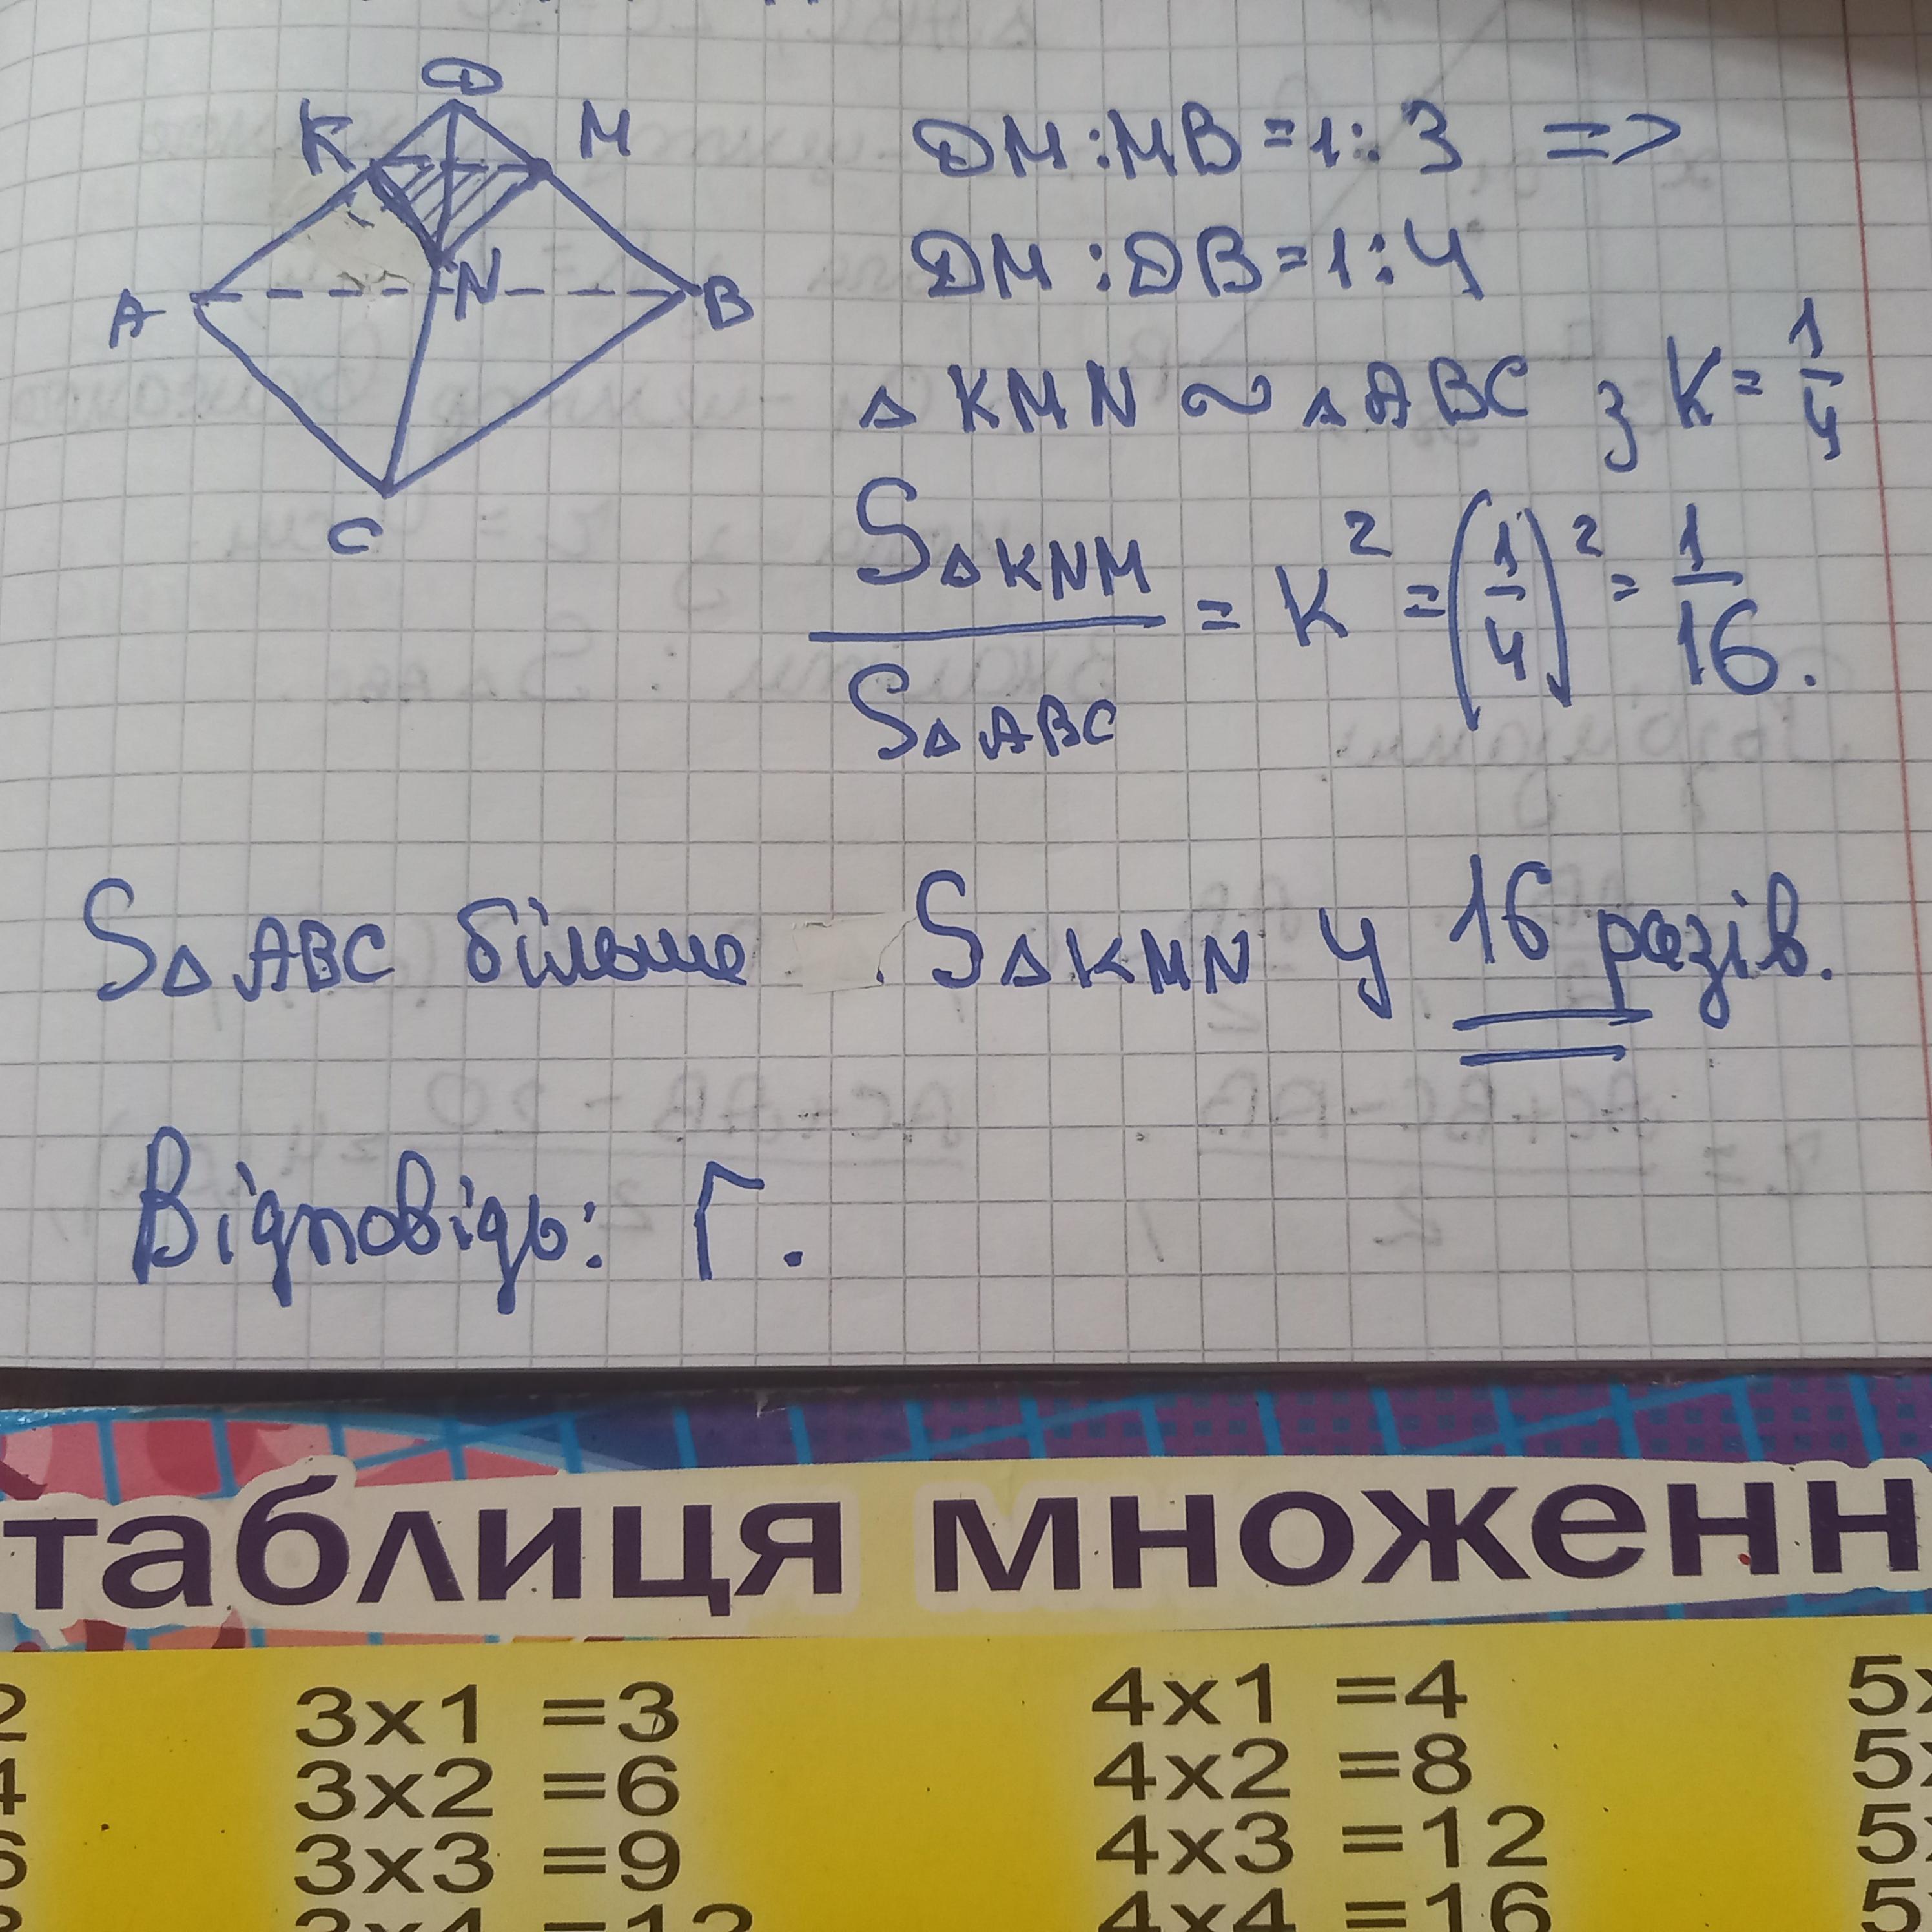 D
K M
A N B
C
DM : MB = 1 : 3 =>
DM : DB = 1 : 4
△ KMN ~ △ ABC з K = 1/4
S△KNM / S△ABC = K² = (1/4)² = 1/16.
S△ABC більше S△KMN у 16 разів.
Відповідь: Г.
таблиця множенн
2 3x1 =3 4x1 =4 5x
4 3x2 =6 4x2 =8 5x
6 3x3 =9 4x3 =12 5x
3x4 =12 4x4 =16 5x